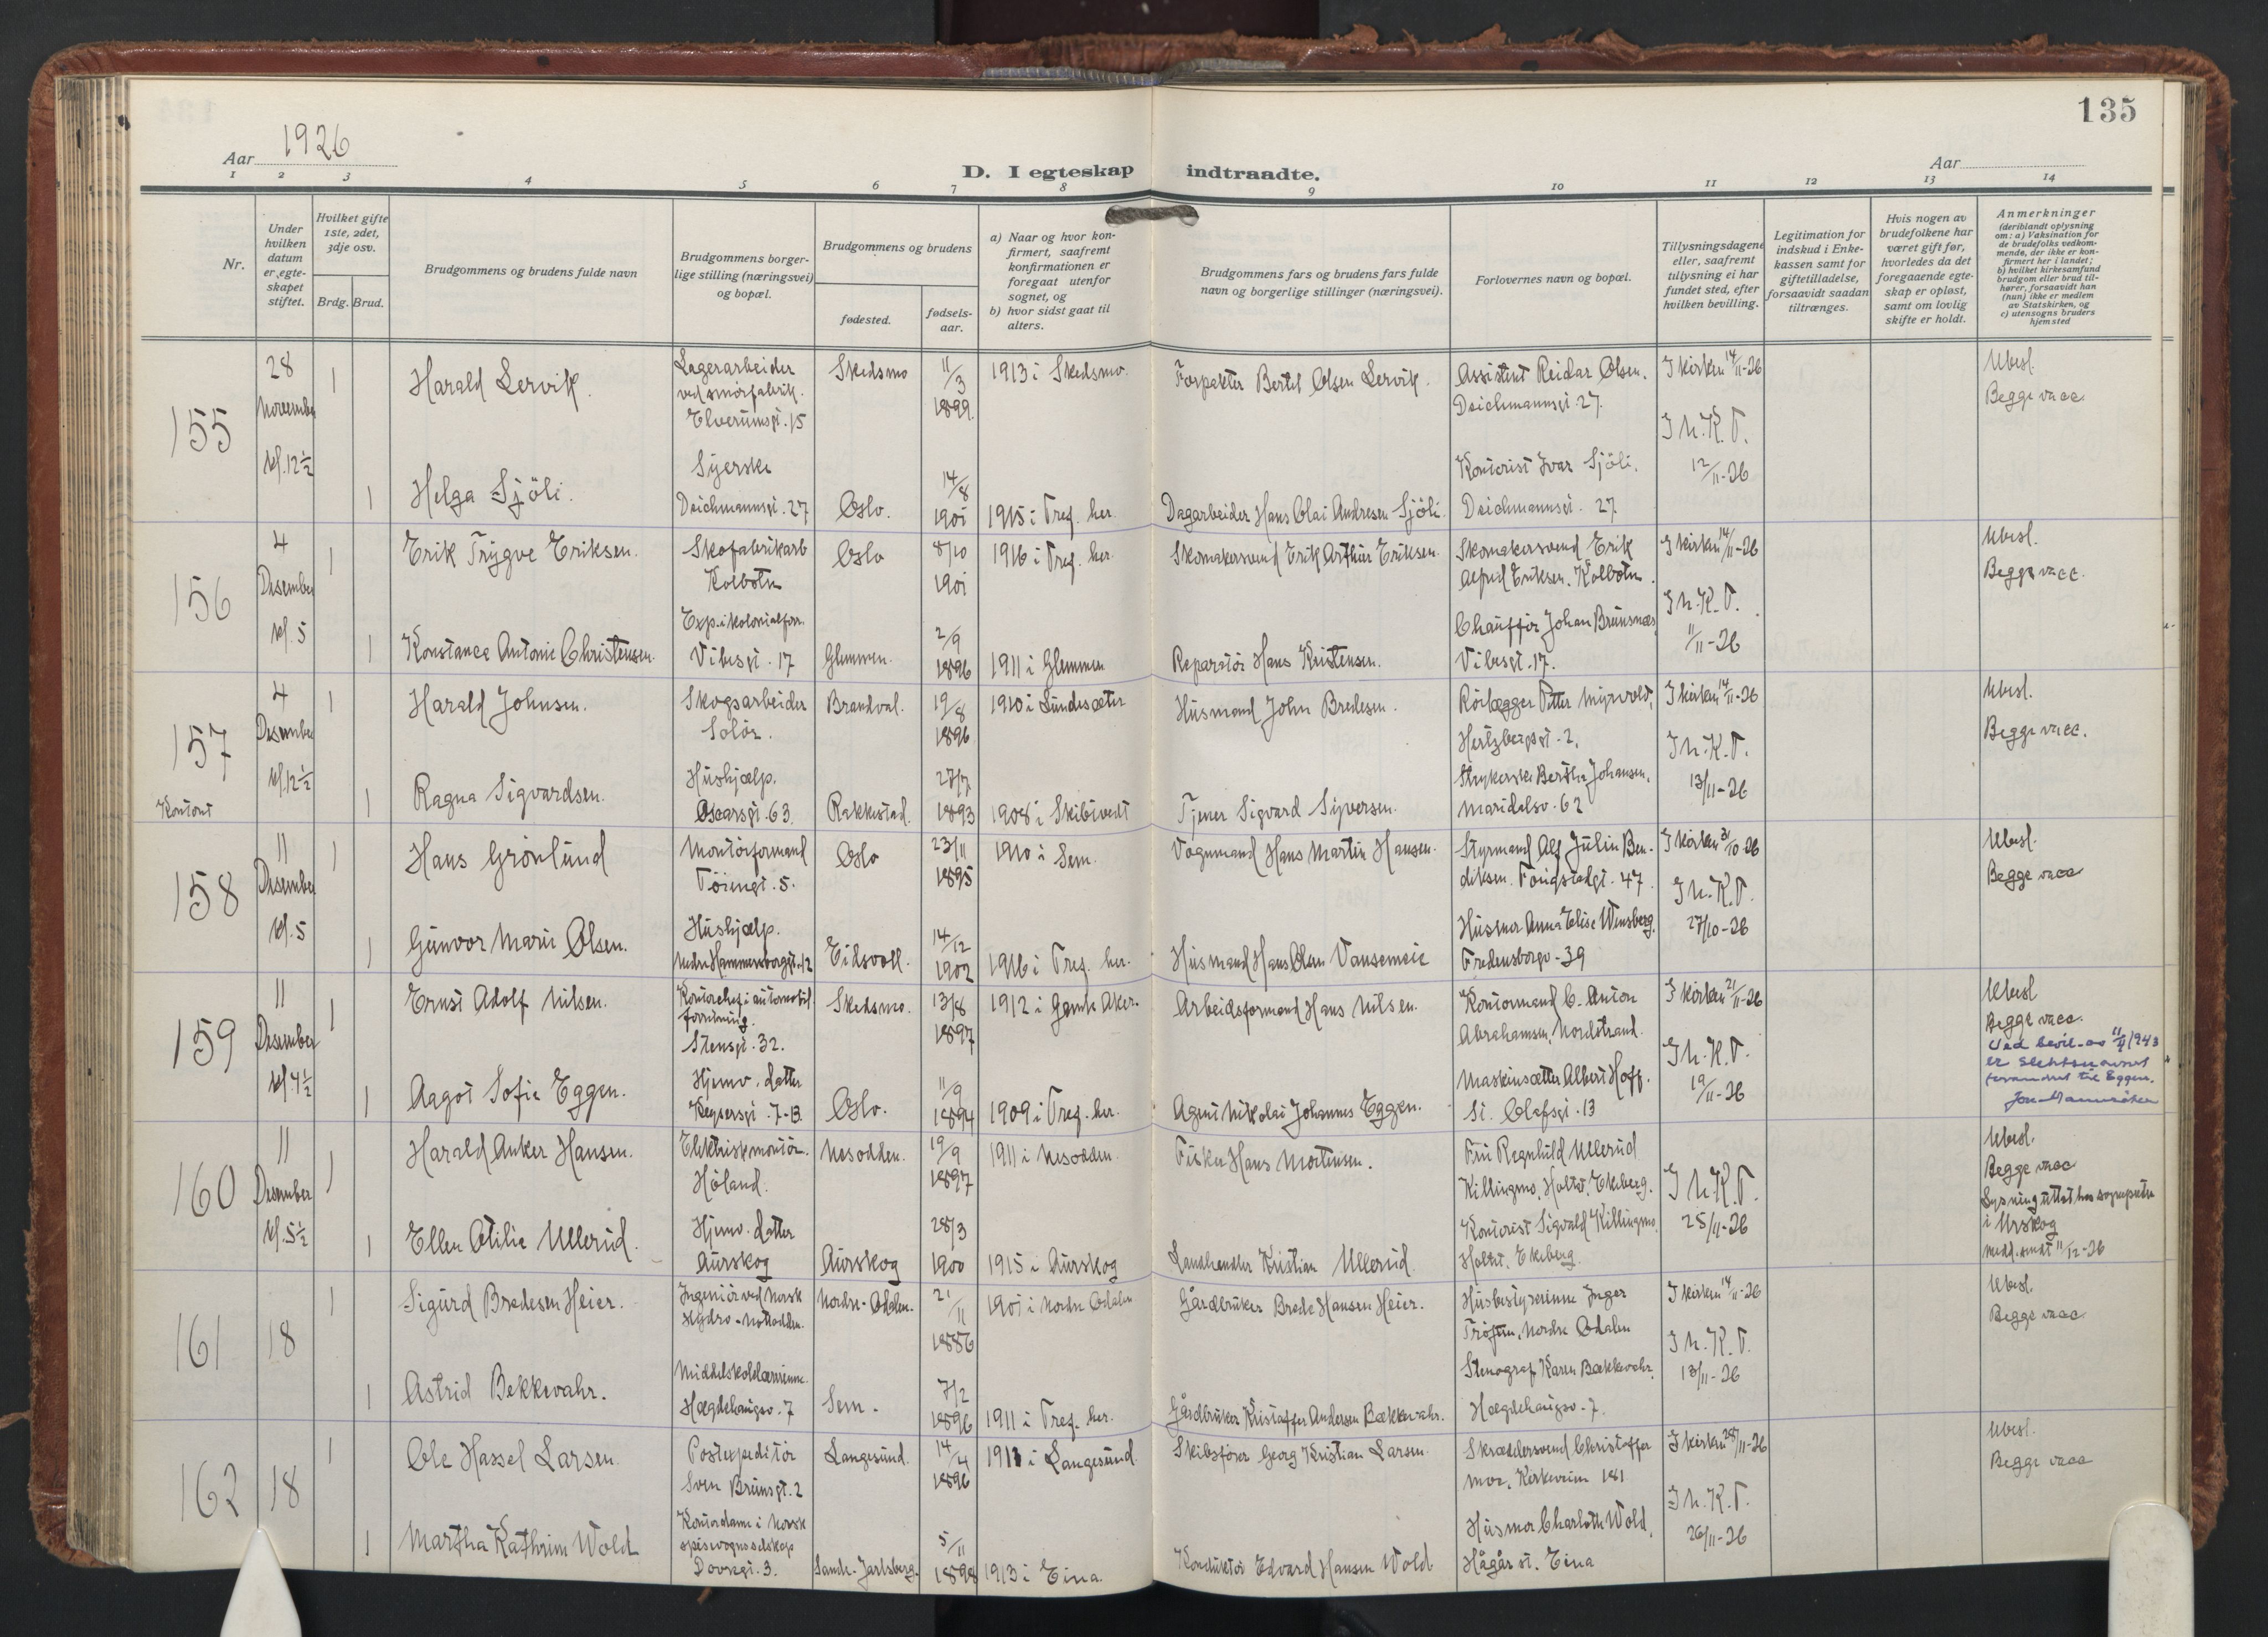 135
Aar 1926
Aar
D. I egteskap indtraadte.
1 2 3 4 5 6 7 8 9 10 11 12 13 14
Nr.
Under hvilken datum er egteskapet stiftet.
Hvilket gifte 1ste, 2det, 3dje osv.
Brdg. Brud.
Brudgommens og brudens fulde navn
Brudgommens borgerlige stilling (næringsvei) og bopæl.
Brudgommens og brudens
fødested.
fødselsaar.
a) Naar og hvor konfirmert, saafremt konfirmationen er foregaat utenfor sognet, og
b) hvor sidst gaat til alters.
Brudgommens fars og brudens fars fulde navn og borgerlige stillinger (næringsvei).
Forlovernes navn og bopæl.
Tillysningsdagene eller, saafremt tillysning ei har fundet sted, efter hvilken bevilling.
Legitimation for indskud i Enkekassen samt for giftetilladelse, forsaavidt saadan tiltrænges.
Hvis nogen av brudefolkene har været gift før, hvorledes da det foregaaende egteskap er opløst, samt om lovlig skifte er holdt.
Anmerkninger (deriblandt oplysning om: a) Vaksination for de brudefolks vedkommende, der ikke er konfirmert her i landet; b) hvilket kirkesamfund brudgom eller brud tilhører, forsaavidt han (hun) ikke er medlem av Statskirken, og c) utensogns bruders hjemsted
155
28 November kl. 12½
1 Harald Lervik.
Lagerarbeider ved smörfabrik. Elverumsgt. 15
Skedsmo
11/3 1899.
1913 i Skedsmo.
Forpakter Bertel Olsen Lervik.
Assistent Reidar Olsen. Deichmannsgt. 27.
I kirken 14/11-26
I N.K.T. 12/11-26
Ubesl. Begge vacc.
1 Helga Sjöli.
Syerske Deichmannsgt. 27
Oslo.
14/8 1901
1915 i Tref. her.
Dagarbeider Hans Olai Andresen Sjöli.
Kontorist Ivar Sjöli. Deichmannsgt. 27.
156
4 Desember kl. 5
1 Erik Trygve Eriksen.
Skofabrikarb Kolbotn
Oslo
8/10 1901
1916 i Tref. her.
Skomakersvend Erik Arthur Eriksen.
Skomakersvend Erik Alfred Eriksen. Kolbotn.
I kirken 14/11-26
I N.K.T. 11/11-26
Ubesl. Begge vacc.
1 Konstance Antonie Christensen.
Exp. i kolonialforr. Vibesgt. 17
Glemmen.
2/9 1896
1911 i Glemmen
Reparatör Hans Kristensen.
Chaufför Johan Brunsnæs, Vibesgt. 17.
157
Kontont
4 Desember kl. 12½
1 Harald Johnsen.
Skogsarbeider Solör.
Brandval.
19/8 1896
1910 i Lundesæter
Husmand John Bredesen.
Rörlægger Petter Myrvold, Hertzbergsgt. 2.
I kirken 14/11-26
I N.K.T. 13/11-26
Ubesl. Begge vacc.
1 Ragna Sigvardsen.
Hushjælp. Oscarsgt. 63.
Rakkestad.
27/7 1893
1908 i Skibtvedt
Tjener Sigvard Syversen.
Strykerske Bertha Johansen, Maridalsv. 62
158
11 Desember kl. 5
1 Hans Grönlund
Montörformand Töiengt. 5.
Oslo
23/11 1895
1910 i Sem.
Vognmand Hans Martin Hansen.
Styrmand Alf Julin Bendiksen. Fougstadgt. 47.
I kirken 31/10-26
I N.K.T. 27/10-26
Ubesl. Begge vacc
1 Gunvor Marie Olsen.
Hushjælp. Nedre Hammersborggt. 12
Eidsvoll.
14/12 1902
1916 i Tref. her.
Husmand Hans Olsen Vansemeie
Husmor Anna Elise Winsberg. Fredensborgv. 39
159
11 Desember kl 4½
1 Ernst Adolf Nilsen.
Kontorchef i automobilforretning. Stensgt. 32.
Skedsmo.
13/8 1897
1912 i Gamle Aker.
Arbeidsformand Hans Nilsen.
Kontormand C. Anton Abrahamsen, Nordstrand.
I kirken 21/11-26
I N.K.T. 19/11-26
Ubesl Begge vacc.
Ved bevil. av 11/4 1943 er slektsnavnet forandret til Eggen.
1 Aagot Sofie Eggen.
Hjemv. datter Keysersgt. 7-B.
Oslo.
11/9 1894
1909 i Tref. her.
Agent Nikolai Johannes Eggen.
Maskinsætter Albert Hoff. St. Olafsgt. 13
160
11 Desember kl. 5½
1 Harald Anker Hansen.
Elektriskmontör. Höland.
Nesodden.
19/9 1897
1911 i Nesodden.
Fisker Hans Mortensen.
Fru Ragnhild Ullerud Killingmo, Holtet, Ekeberg.
I N.K.T. 25/11-26
Ubesl. Begge vacc
Lysning uttat hos sogneprsten i Urskog
medd. sendt 11/12-26
1 Ellen Otilie Ullerud.
Hjemv. datter Aurskog
Aurskog
28/3 1900
1915 i Aurskog
Landhandler Kristian Ullerud.
Kontorist Sigvald Killingmo, Holtet. Ekeberg.
161
18
1 Sigurd Bredesen Heier.
Ingeniör ved Norsk Hydro - Notodden.
Nordre-Odalen.
21/11 1886
1901 i Nordre Odalen
Gårdbruker Brede Hansen Heier.
Husbestyrerinne Inger Tröften, Nordre Odalen
I kirken 14/11-26
I N.K.T. 13/11-26
Ubesl. Begge vacc
1 Astrid Bekkevahr.
Middelskolelærerinne. Hægdehaugsv. 7
Sem.
7/2 1896
1911 i Tref. her.
Gårdbruker Kristaffer Andersen Bækkevahr.
Stenograf Karen Bækkevahr. Hægdehaugsv. 7.
162
18
1 Ole Hassel Larsen.
Postexpeditör Sven Brunsgt. 2
Langesund.
14/4 1896
1911 i Langesund.
Skibsförer Georg Kristian Larsen.
Skræddersvend Christoffer Moe, Kirkeveien 181
I kirken 28/11-26
I N.K.T. 26/11-26
Ubesl. Begge vacc
1 Martha Kathrine Wold
Kontordame i Norsk spisevognsselskap Dovregt. 3.
Sande-Jarlsberg.
5/11 1898
1913 i Eina.
Konduktör Edvard Hansen Wold
Husmor Charlotte Wold, Hågår st. Eina